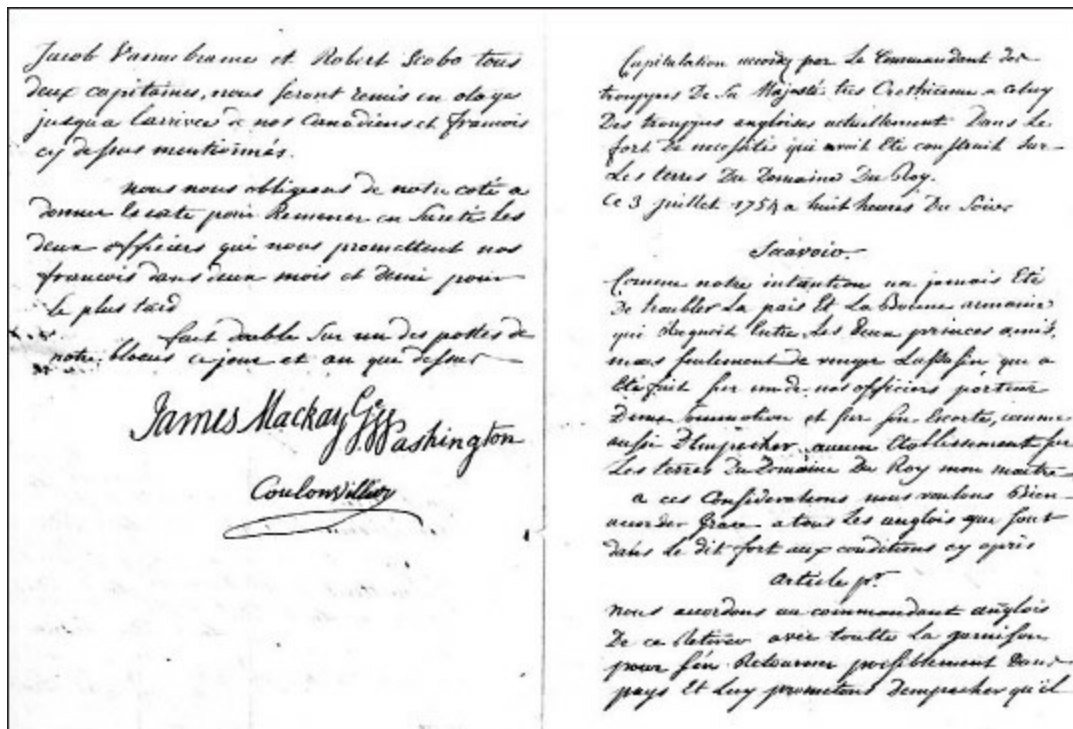 Jacob Vannebrame et Robert Scobo tous
deux capitaines, nous seront remis en otage
jusqua larrivée de nos Canadiens et francois
cy dessus mentionnés.
nous nous obligeons de notre coté a
donner Escorte pour Ramener en Sureté les
deux officiers qui nous promettent nos
francois dans deux mois et demi pour
le plus tard
fait double sur un des postes de
notre blocus ce jour et an que dessus
James Mackay G:
Washington
CoulonVillier
Capitulation accordée par Le Commandant des
trouppes De Sa Majesté tres Crethienne a celuy
Des trouppes angloises actuellement Dans Le
fort De necessité qui avait Eté construit sur
Les terres Du Domaine Du Roy.
Ce 3 juillet 1754 a huit heures Du Soir
Scavoir
Comme notre intention na jamais Eté
De troubler La paix Et La Bonne armonie
qui Regnoit Entre Les Deux princes amis,
mais seulement de venger Lassasin, qui a
Eté fait sur un de nos officiers porteur
Dune sommation et sur son Escorte, comme
aussi D'empecher aucun Etablissement sur
Les terres du Domaine Du Roy mon maitre
a ces Considerations nous voulons Bien
accorder Grace a tous Les anglois que sont
dans le dit fort aux conditions cy apres
article pr.
nous accordons au commandant anglois
De ce Retirer avec toutte La garnison
pour s'en Retourner paisiblement Dans
pays Et Luy promettons Dempecher qu'il